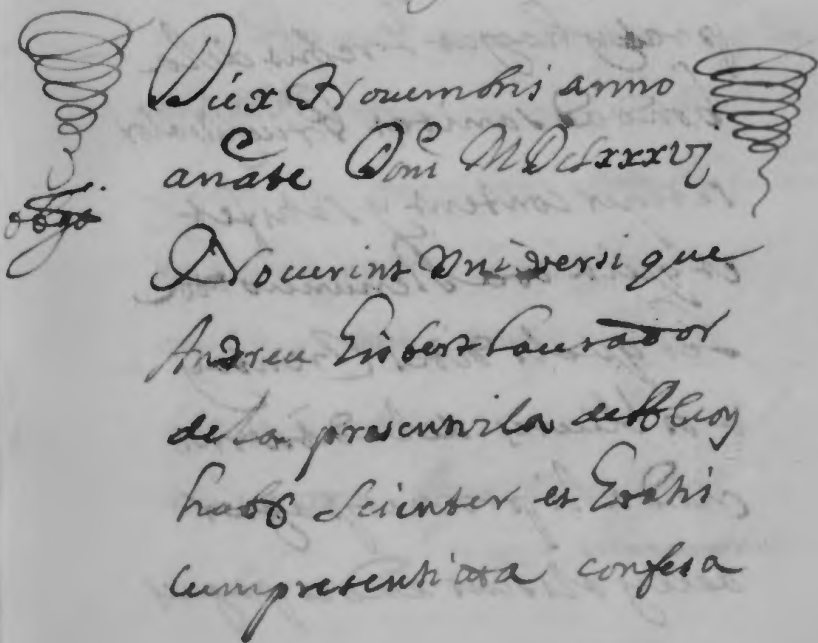 Die x Nouembris anno
anate Doni MDCLxxxvj
Nouerint Vniversi que
Andreu Gisbert Laurador
de la present vila de Alcoy
habr scienter et Gratis
cum presenti cara confesa